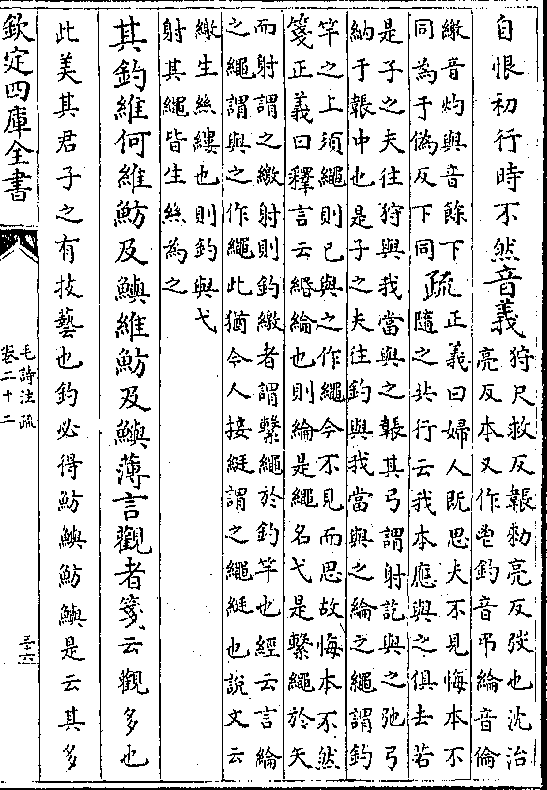 自恨初行時不然音義狩尺救反韔勑亮反弢也沈治
亮反本又作鬯釣音弔綸音倫
繳音灼與音餘下
同為于偽反下同疏正義曰婦人既思夫不見悔本不
隨之共行云我本應與之俱去若
是子之夫往狩與我當與之韔其弓謂射訖與之弛弓
納于韔中也是子之夫往釣與我當與之綸之繩謂釣
竿之上須繩則已與之作繩今不見而思故悔本不然
箋正義曰釋言云緡綸也則綸是繩名弋是繫繩於矢
而射謂之繳射則釣繳者謂繫繩於釣竿也經云言綸
之繩謂與之作繩此猶今人接綎謂之繩綎也說文云
繳生絲縷也則釣與弋
射其繩皆生絲為之
其釣維何維魴及鱮維魴及鱮薄言觀者箋云觀多也
此美其君子之有技藝也釣必得魴鱮魴鱮是云其多
欽定四庫全書
毛詩注疏
卷二十二
三十六